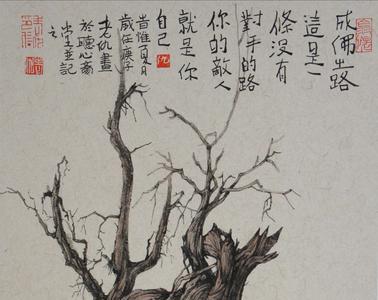 成佛之路
這是一
條沒有
對手的路
你的敵人
就是你
自己
昔惟夏月
歲在庚子
老仇畫
於聽心齋
堂主並記
之